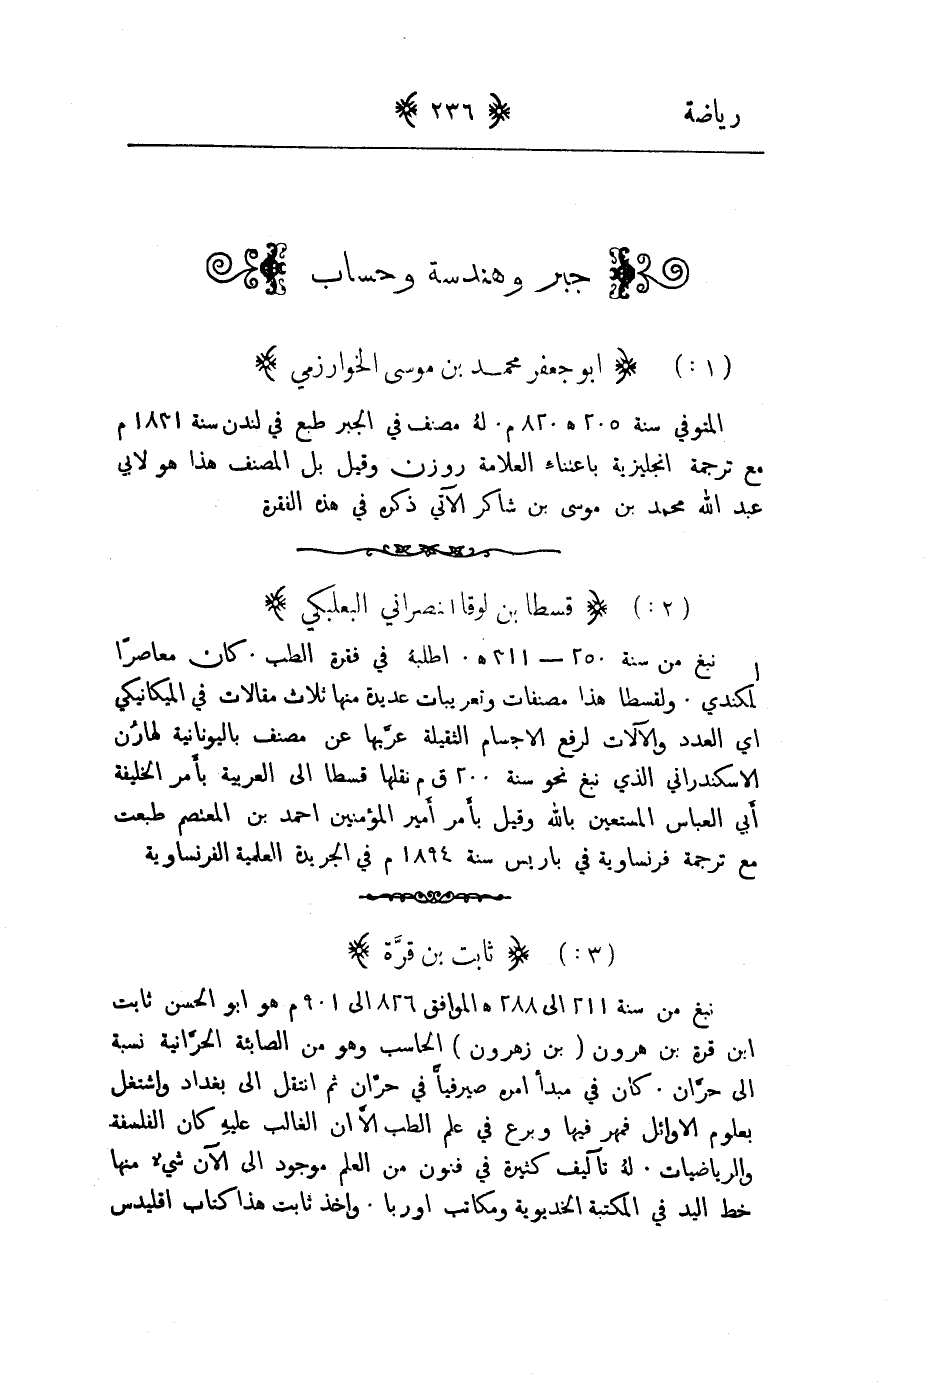 رياضة ﴿ ٢٣٦ ﴾
جبر وهندسة وحساب
(١:) ﴿ ابو جعفر محمد بن موسى الخوارزمي ﴾
المتوفي سنة ٢٠٥ ه ٨٢٠ م ٠ لهُ مصنف في الجبر طبع في لندن سنة ١٨٣١ م
مع ترجمة انجليزية باعتناء العلامة روزن وقيل بل المصنف هذا هو لابي
عبد الله محمد بن موسى بن شاكر الآتي ذكره في هذه الفقرة
(٢:) ﴿ قسطا بن لوقا النصراني البعلبكي ﴾
نبغ من سنة ٢٥٠ — ٣١١ ه ٠ اطلبهُ في فقرة الطب ٠ كان معاصرًا
لمكندي ٠ ولقسطا هذا مصنفات وتعريبات عديدة منها ثلاث مقالات في الميكانيكي
اي العدد والآلات لرفع الاجسام الثقيلة عرَّبها عن مصنف باليونانية لهارُن
الاسكندراني الذي نبغ نحو سنة ٢٠٠ ق م نقلها قسطا الى العربية بأمر الخليفة
أبي العباس المستعين بالله وقيل بأمر أمير المؤمنين احمد بن المعتصم طبعت
مع ترجمة فرنساوية في باريس سنة ١٨٩٤ م في الجريدة العلمية الفرنساوية
(٣:) ﴿ ثابت بن قرَّة ﴾
نبغ من سنة ٢١١ الى ٢٨٨ ه الموافق ٨٢٦ الى ٩٠١ م هو ابو الحسن ثابت
ابن قرة بن هرون ( بن زهرون ) الحاسب وهو من الصابئة الحرَّانية نسبة
الى حرَّان ٠ كان في مبدأ امره صيرفياً في حرَّان ثم انتقل الى بغداد واشتغل
بعلوم الاوائل فمهر فيها وبرع في علم الطب الاَّ ان الغالب عليهِ كان الفلسفة
والرياضيات ٠ لهُ تآليف كثيرة في فنون من العلم موجود الى الآن شيءٌ منها
خط اليد في المكتبة الخديوية ومكاتب اوربا ٠ واخذ ثابت هذا كتاب اقليدس